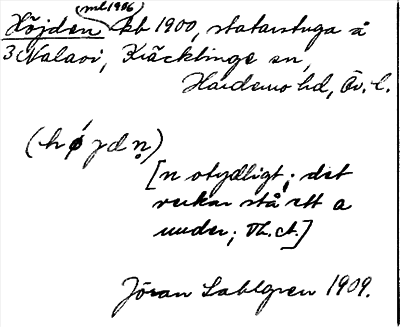 (ml 1906)
Höjden kb 1900, statarstuga å
3 Nalavi, Kräcklinge sn,
Hardemo hd, Ör. l.
(hǿjdn̥)
[n otydligt; det
verkar stå ett a
under; Th. ct.]
Jöran Sahlgren 1909.